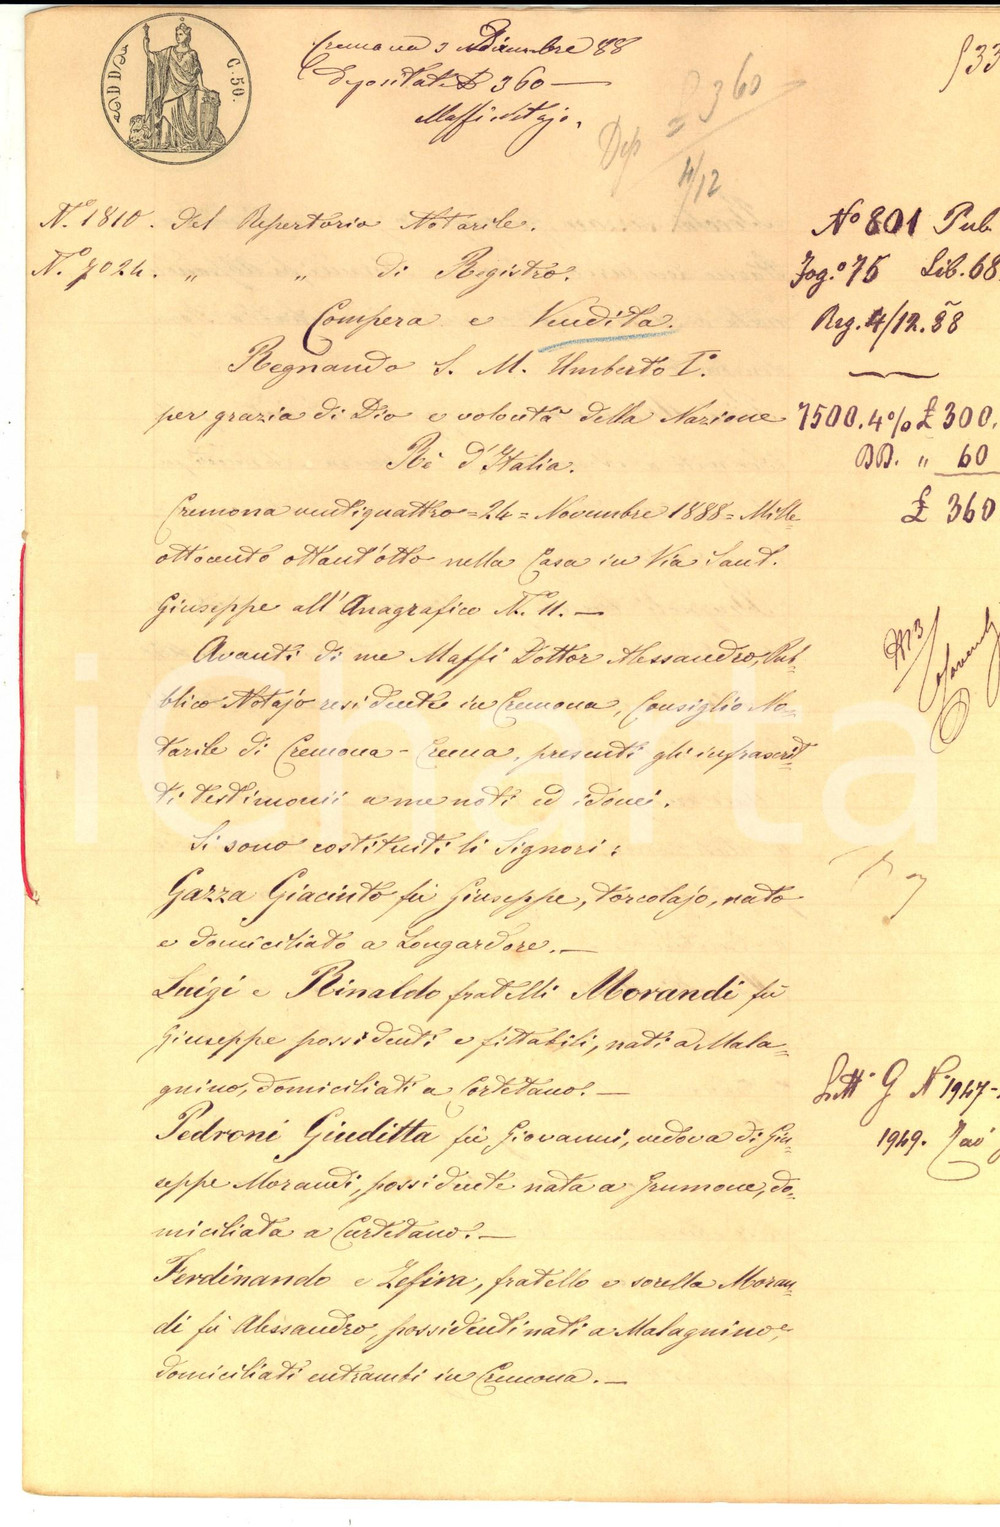 C. 50.
Cremona 3 Dicembre 88
Depositate £ 360 —
Maffi Notajo.
Dep £ 360
4/12
§ 33
N.º 1810. del Repertorio Notarile.
N.º 7024. „ „ di Registro.
Nº 801 Pub.
Fog.º 75 Lib. 68.
Reg. 4/12.88
Compera e Vendita.
Regnando S. M. Umberto Iº.
per grazia di Dio e volontà della Nazione
7500. 4% £ 300.
Rè d'Italia.
DD. „ 60
£ 360
Cremona ventiquattro = 24 = Novembre 1888 = Mille
ottocento ottant'otto nella Casa in Via Sant.
Giuseppe all'Anagrafico N.º 11. —
Avanti di me Maffi Dottor Alessandro, Pub=
blico Notajo residente in Cremona, Consiglio No=
tarile di Cremona - Crema, presenti gli infrascrit=
ti testimonii a me noti ed idonei.
Si sono costituiti li Signori:
Gazza Giacinto fù Giuseppe, torcolajo, nato
e domiciliato a Longardore. —
Luigi e Rinaldo fratelli Morandi fù
Giuseppe possidenti e fittabili, nati a Mala=
gnino, domiciliati a Cortetano. —
Pedroni Giuditta fù Giovanni, vedova di Giu=
seppe Morandi, possidente nata a Grumone, do=
miciliata a Cortetano. —
Ferdinando e Zefira, fratello e sorella Moran=
di fù Alessandro, possidenti nati a Malagnino,
domiciliati entrambi in Cremona. —
Lett. G Nº 1947-
1949.
iCharta